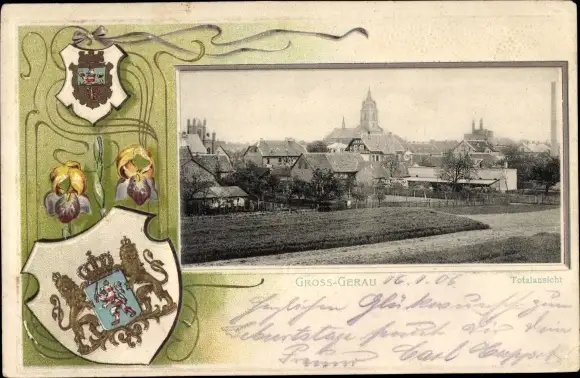 GROSS-GERAU 16.1.06. Totalansicht
Herzlichen Glückwunsch zum
Geburtstage sendet Dir Dein
Freund Carl